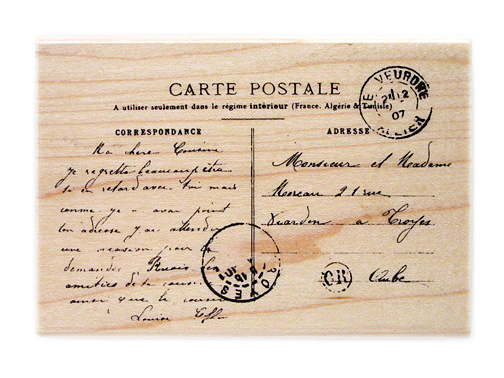 CARTE POSTALE
A utiliser seulement dans le régime intérieur (France, Algérie & Tunisie)
CORRESPONDANCE
Ma chere Cousine
je regrette beaucoup être
si en retard avec toi mais
comme je n avai point
ton adresse J'ai attendu
une occasion pour la
demander Reçois les
amitiés de ta cousine
ainsi que le cousin
Louise
ADRESSE
Monsieur et Madame
Moreau 21 rue
à Troyes
Aube
VEURDRE
2
07
ALLIER
TROYES
OR